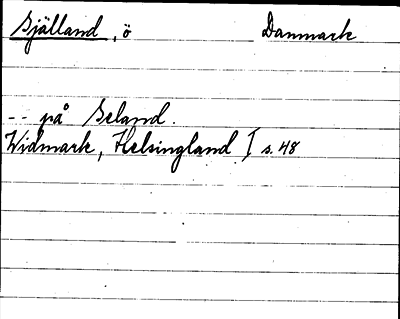 Själland, ö Danmark
-- på Seland.
Widmark, Helsingland I s. 48